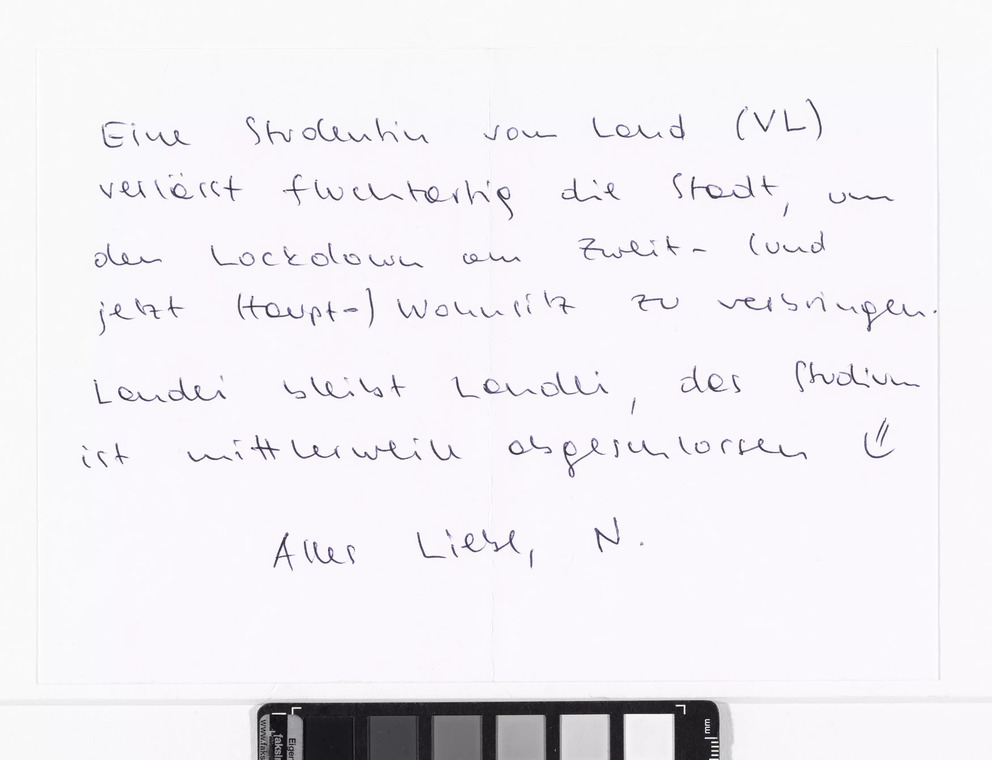 Eine Studentin vom Land (VL)
verlässt fluchtartig die Stadt, um
den Lockdown am Zweit- (und
jetzt Haupt-) Wohnsitz zu verbringen.
Landei bleibt Landei, das Studium
ist mittlerweile abgeschlossen
Alles Liebe, N.
mm